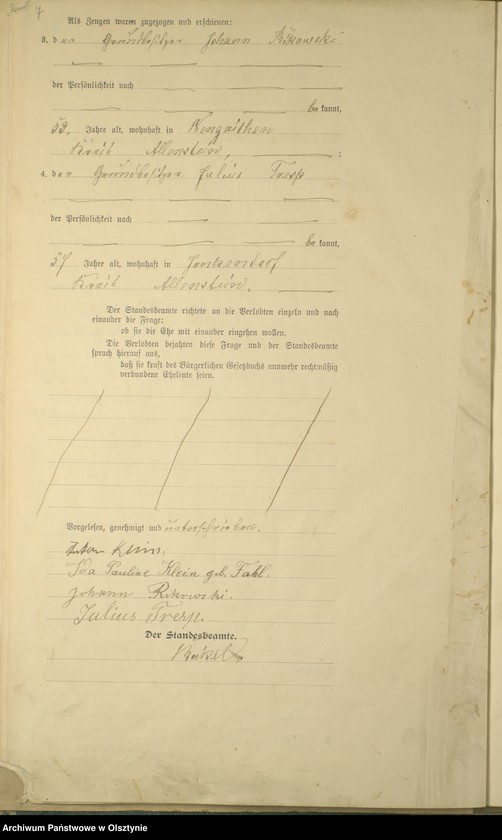 7
Als Zeugen waren zugezogen und erschienen:
3. der Grundbesitzer Johann Rikowski
der Persönlichkeit nach
bekannt,
53 Jahre alt, wohnhaft in Wengaithen
Kreis Allenstein,
;
4. der Grundbesitzer Julius Tresp
der Persönlichkeit nach
bekannt,
57 Jahre alt, wohnhaft in Jonkendorf
Kreis Allenstein.
Der Standesbeamte richtete an die Verlobten einzeln und nach
einander die Frage:
ob sie die Ehe mit einander eingehen wollen.
Die Verlobten bejahten diese Frage und der Standesbeamte
sprach hierauf aus,
daß sie kraft des Bürgerlichen Gesetzbuchs nunmehr rechtmäßig
verbundene Eheleute seien.
Vorgelesen, genehmigt und unterschrieben.
Klein.
Ida Pauline Klein geb. Fahl.
Johann Rikowski.
Julius Tresp.
Der Standesbeamte.
Archiwum Państwowe w Olsztynie